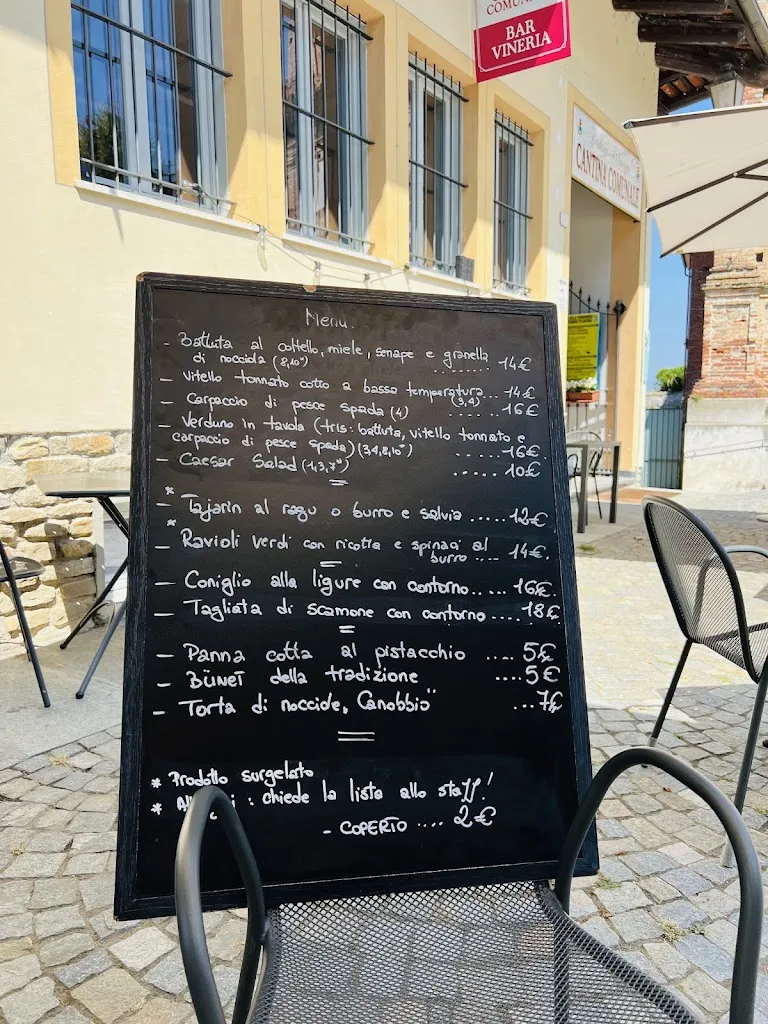 COMUNALE
BAR
VINERIA
CANTINA COMUNALE
Menu.
- Battuta al coltello, miele, senape e granella
di nocciola (8,10") ........ 14€
- Vitello tonnato cotto a bassa temperatura... 14€
(3,4)
- Carpaccio di pesce spada (4) ..... 16€
- Verduno in tavola (tris: battuta, vitello tonnato e
carpaccio di pesce spada) (3,4,8,10") ...... 16€
- Caesar Salad (1,3,7") ...... 10€
* - Tajarin al ragu o burro e salvia ..... 12€
* - Ravioli verdi con ricotta e spinaci al
burro .... 14€.
- Coniglio alla ligure con contorno..... 16€.
- Tagliata di scamone con contorno.... 18€
- Panna cotta al pistacchio .... 5€
- BÜNET della tradizione ....5€
- Torta di nocciole "Canobbio" ...7€
* Prodotto surgelato
* : chiede la lista allo staff!
- COPERTO .... 2€